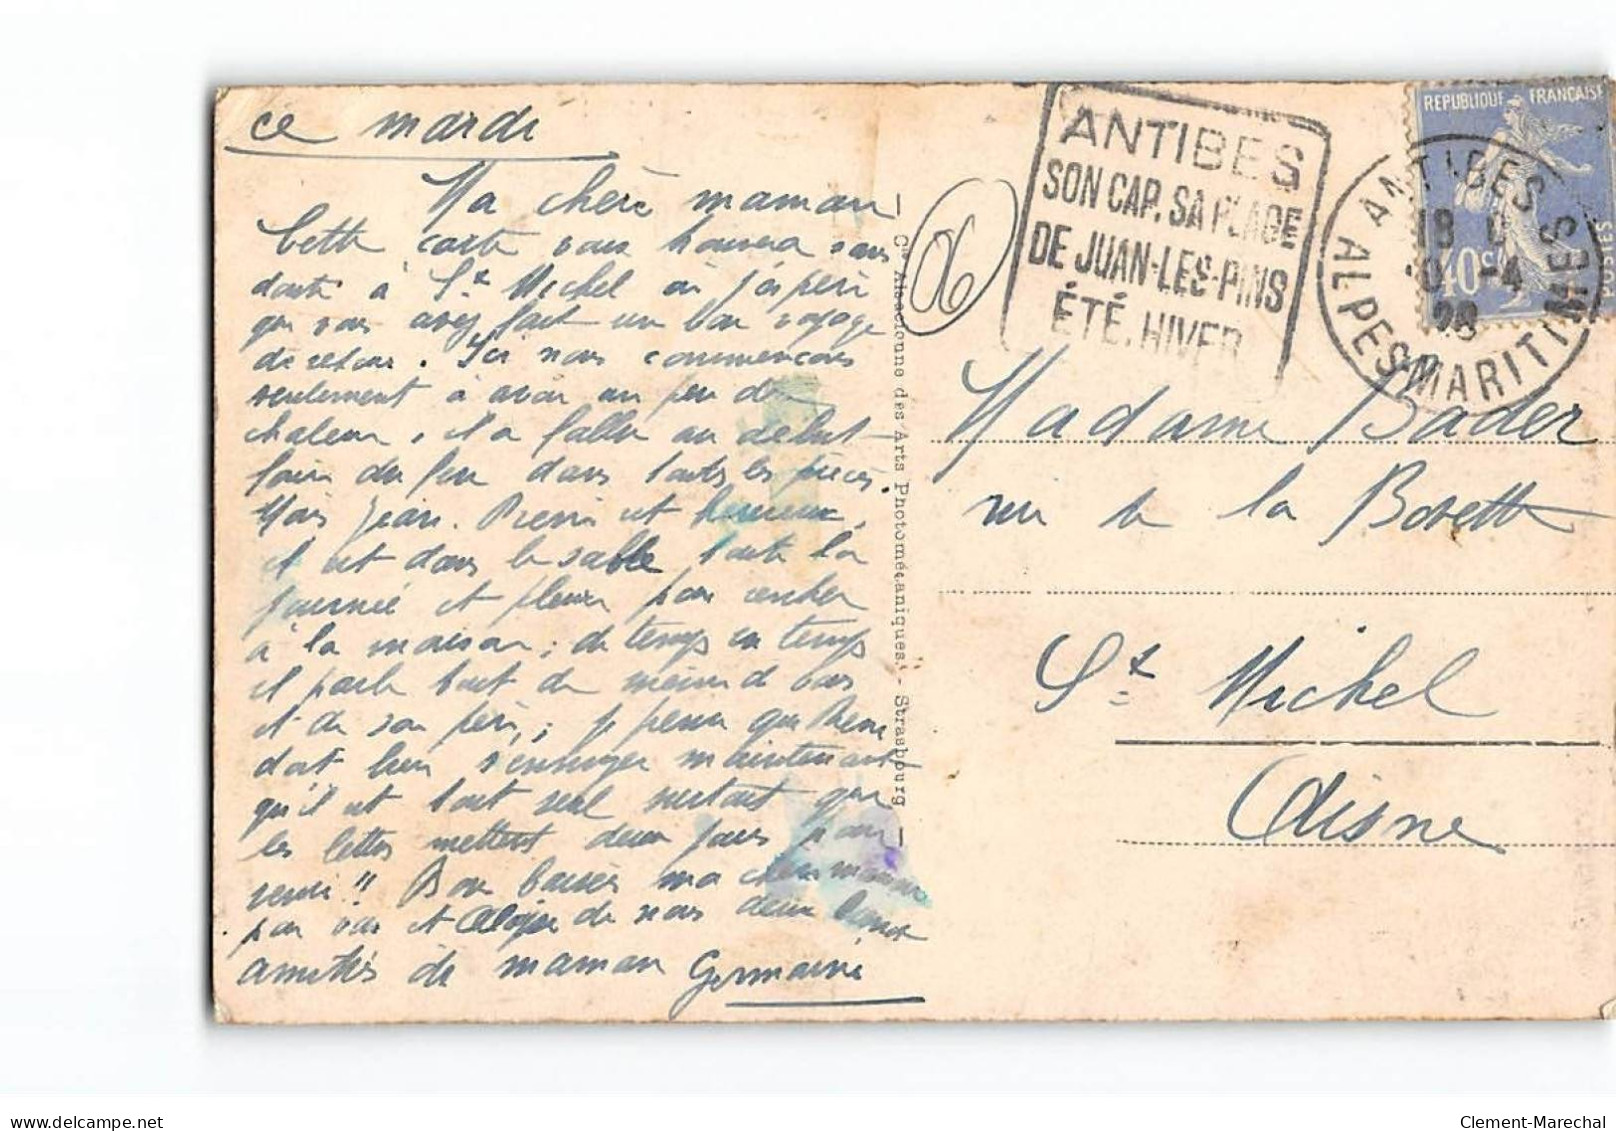 ce mardi
Ma chère maman
Cette carte vous trouvera sans
doute à St Michel où j'espère
que vous avez fait un bon voyage
de retour. Ici nous commençons
seulement à avoir un peu de
chaleur, il a fallu au début
faire du feu dans toutes les pièces.
Mais Jean. Pierre est heureux,
il est dans le sable toute la
journée et pleure pour rentrer
à la maison; de temps en temps
il parle tout de même de vous
et de son père; je pense que Pierre
doit bien s'ennuyer maintenant
qu'il est tout seul surtout que
les lettres mettent deux jours pour
venir!! Bons baisers ma chère maman
pour vous et de nous deux
amitiés de maman Germaine
Cie Alsacienne des Arts Photomécaniques. - Strasbourg
06
ANTIBES
SON CAP. SA PLAGE
DE JUAN-LES-PINS
ÉTÉ. HIVER
REPUBLIQUE FRANÇAISE
POSTES
40c
ANTIBES
18
-4
28
ALPES-MARITIMES
Madame Bader
rue de la Bovette
St Michel
Aisne
delcampe.net
Clement-Marechal